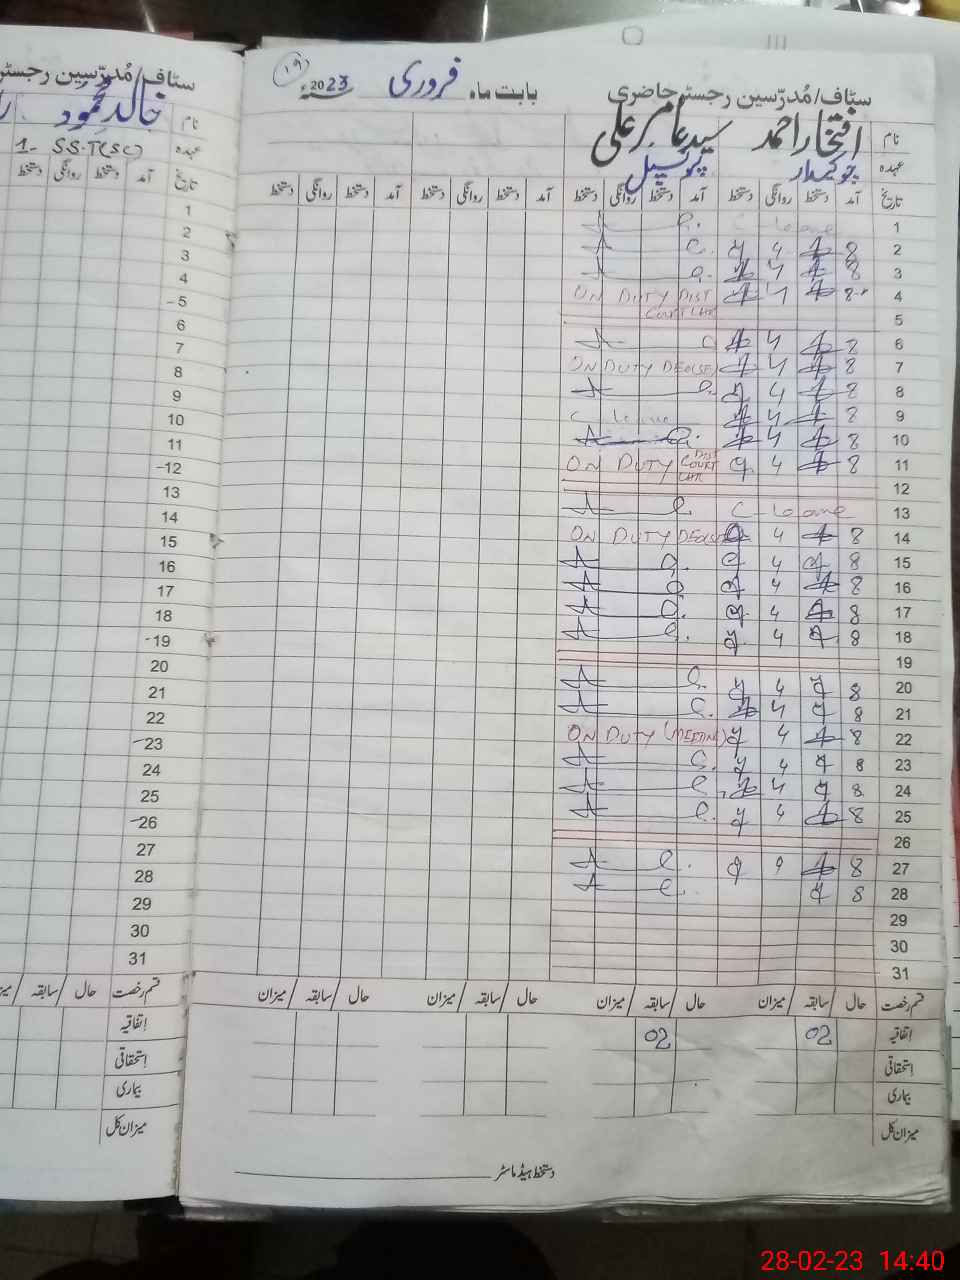 سٹاف/مُدرّسین رجسٹر حاضری بابت ماہ فروری 2023ء ١٩
نام افتخار احمد سید عامر علی
عہدہ چوکیدار پرنسپل
تاریخ آمد دستخط روانگی دستخط آمد دستخط روانگی دستخط آمد دستخط روانگی دستخط آمد دستخط روانگی دستخط
1 C-Leave
2 8 4
3 8 4
4 8 4 ON DUTY DIST COURT CHR
5
6 8 4
7 8 4 ON DUTY DEO(SE)
8 8 4
9 8 4 C Leave
10 8 4
11 8 4 ON DUTY DIST COURT CHR
12
13 C-Leave
14 8 4 ON DUTY DEO(SE)
15 8 4
16 8 4
17 8 4
18 8 4
19
20 8 4
21 8 4
22 8 4 ON DUTY (MEETING)
23 8 4
24 8 4
25 8 4
26
27 8
28 8
29
30
31
قسم رخصت حال سابقہ میزان حال سابقہ میزان حال سابقہ میزان حال سابقہ میزان
اتفاقیہ 02 02
استحقاقی
بیماری
میزان کل
دستخط ہیڈ ماسٹر
سٹاف/مُدرّسین رجسٹر
نام خالد محمود
عہدہ 1- S.S.T(SC)
تاریخ آمد دستخط روانگی دستخط
1
2
3
4
5
6
7
8
9
10
11
12
13
14
15
16
17
18
19
20
21
22
23
24
25
26
27
28
29
30
31
قسم رخصت حال سابقہ
اتفاقیہ
استحقاقی
بیماری
میزان کل
28-02-23 14:40